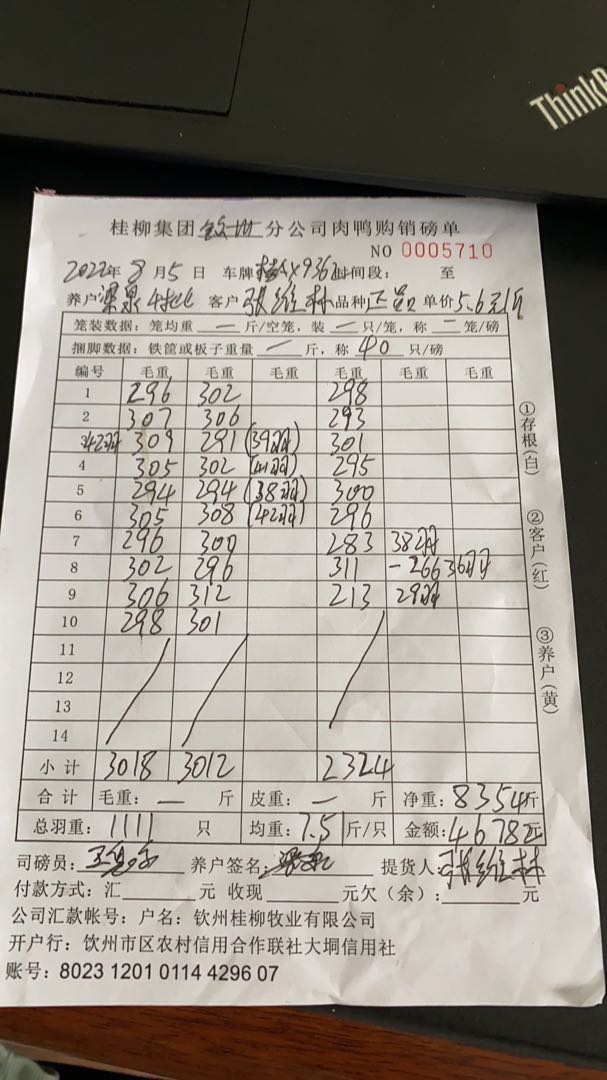 Think
桂柳集团钦州分公司肉鸭购销磅单
NO 0005710
2022年8月5日 车牌 X9362 时间段: 至
养户 梁泉 客户 张维林 品种 单价5.6元/斤
笼装数据: 笼均重 — 斤/空笼, 装 — 只/笼, 称 — 笼/磅
捆脚数据: 铁筐或板子重量 — 斤, 称 40 只/磅
编号 毛重 毛重 毛重 毛重 毛重 毛重
1 296 302 298
2 307 306 293
42羽 309 291 (39羽) 301
4 305 302 (41羽) 295
5 294 294 (38羽) 300
6 305 308 (42羽) 296
7 296 300 283 38羽
8 302 296 311 -266 36羽
9 306 312 213 29羽
10 298 301
11
12
13
14
小计 3018 3012 2324
合计 毛重: — 斤 皮重: — 斤 净重: 8354斤
总羽重: 1111 只 均重: 7.5 斤/只 金额: 46782元
司磅员: 养户签名: 提货人: 张维林
付款方式: 汇 元 收现 元欠(余): 元
公司汇款帐号: 户名: 钦州桂柳牧业有限公司
开户行: 饮州市区农村信用合作联社大垌信用社
账号: 8023 1201 0114 4296 07
①存根(白)
②客户(红)
③养户(黄)